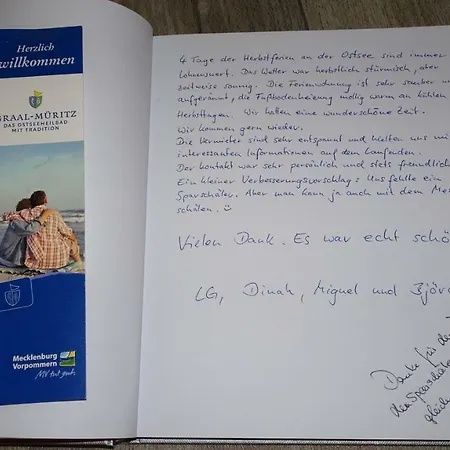 Herzlich
willkommen
GRAAL-MÜRITZ
DAS OSTSEEHEILBAD
MIT TRADITION
Mecklenburg
Vorpommern
MV tut gut.
4 Tage der Herbstferien an der Ostsee sind immer
lohnenswert. Das Wetter war herbstlich stürmisch, aber
zeitweise sonnig. Die Ferienwohnung ist sehr sauber u
aufgeräumt, die Fußbodenheizung mollig warm an kühlen
Herbsttagen. Wir hatten eine wunderschöne Zeit.
Wir kommen gern wieder.
Die Vermieter sind sehr entspannt und hielten uns mi
interessanten Informationen auf dem Laufenden.
Der Kontakt war sehr persönlich und stets freundlich
Ein kleiner Verbesserungsvorschlag: Uns fehlte ein
Sparschäler. Aber man kann ja auch mit dem Mes
schälen. ☺
Vielen Dank. Es war echt schö
LG, Dinah, Miguel und Björ
Danke für de
den Sparschäle
gleich